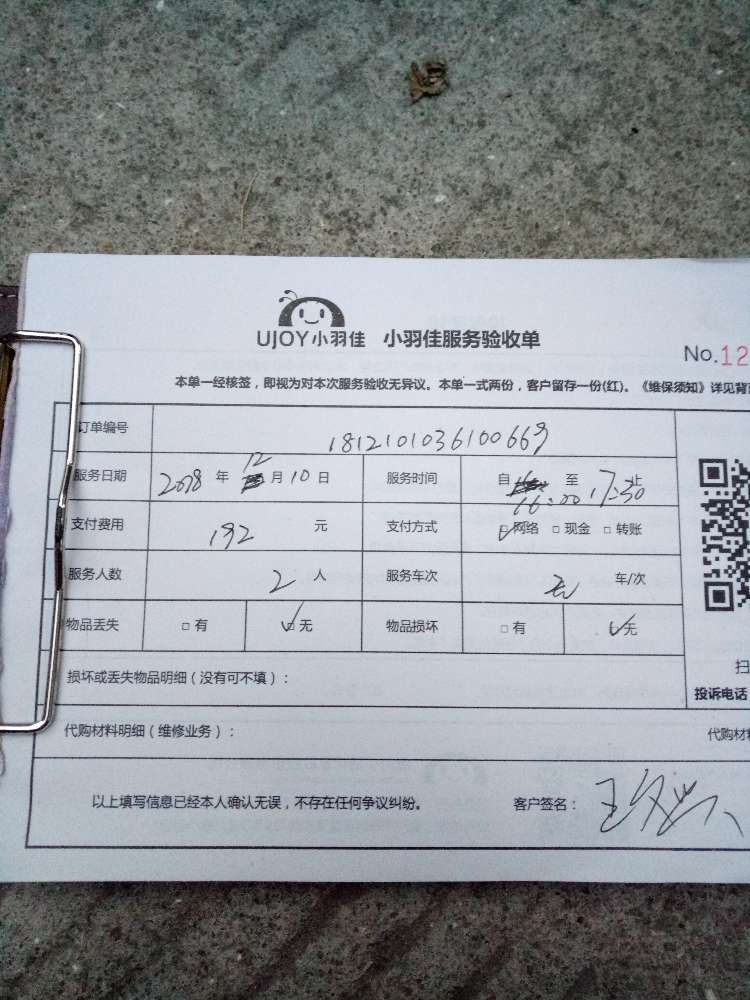 UJOY小羽佳 小羽佳服务验收单
No.12
本单一经核签，即视为对本次服务验收无异议。本单一式两份，客户留存一份(红)。《维保须知》详见背
订单编号 1812101036100669
服务日期 2018 年 12 月 10 日 服务时间 自 16:00 至 17:30 止
支付费用 192 元 支付方式 ☑网络 □现金 □转账
服务人数 2 人 服务车次 无 车/次
物品丢失 □有 ☑无 物品损坏 □有 ☑无
扫
损坏或丢失物品明细（没有可不填）：
投诉电话
代购材料明细（维修业务）： 代购材
以上填写信息已经本人确认无误，不存在任何争议纠纷。 客户签名：